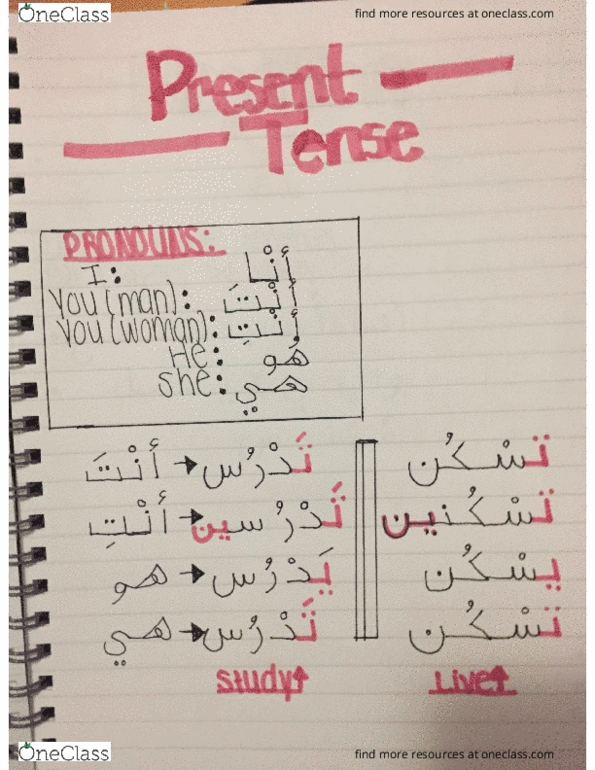 OneClass find more resources at oneclass.com
Present
Tense
PRONOUNS:
I: أَنْا
You (man): أَنْتَ
You (woman): أَنْتِ
He: هُو
She: هي
تَدْرُس → أَنْتَ تَسْكُن
تَدْرُسين → أَنْتِ تَسْكُنين
يَدْرُس → هو يَسْكُن
تَدْرُس → هي تَسْكُن
study↑ Live↑
OneClass find more resources at oneclass.com